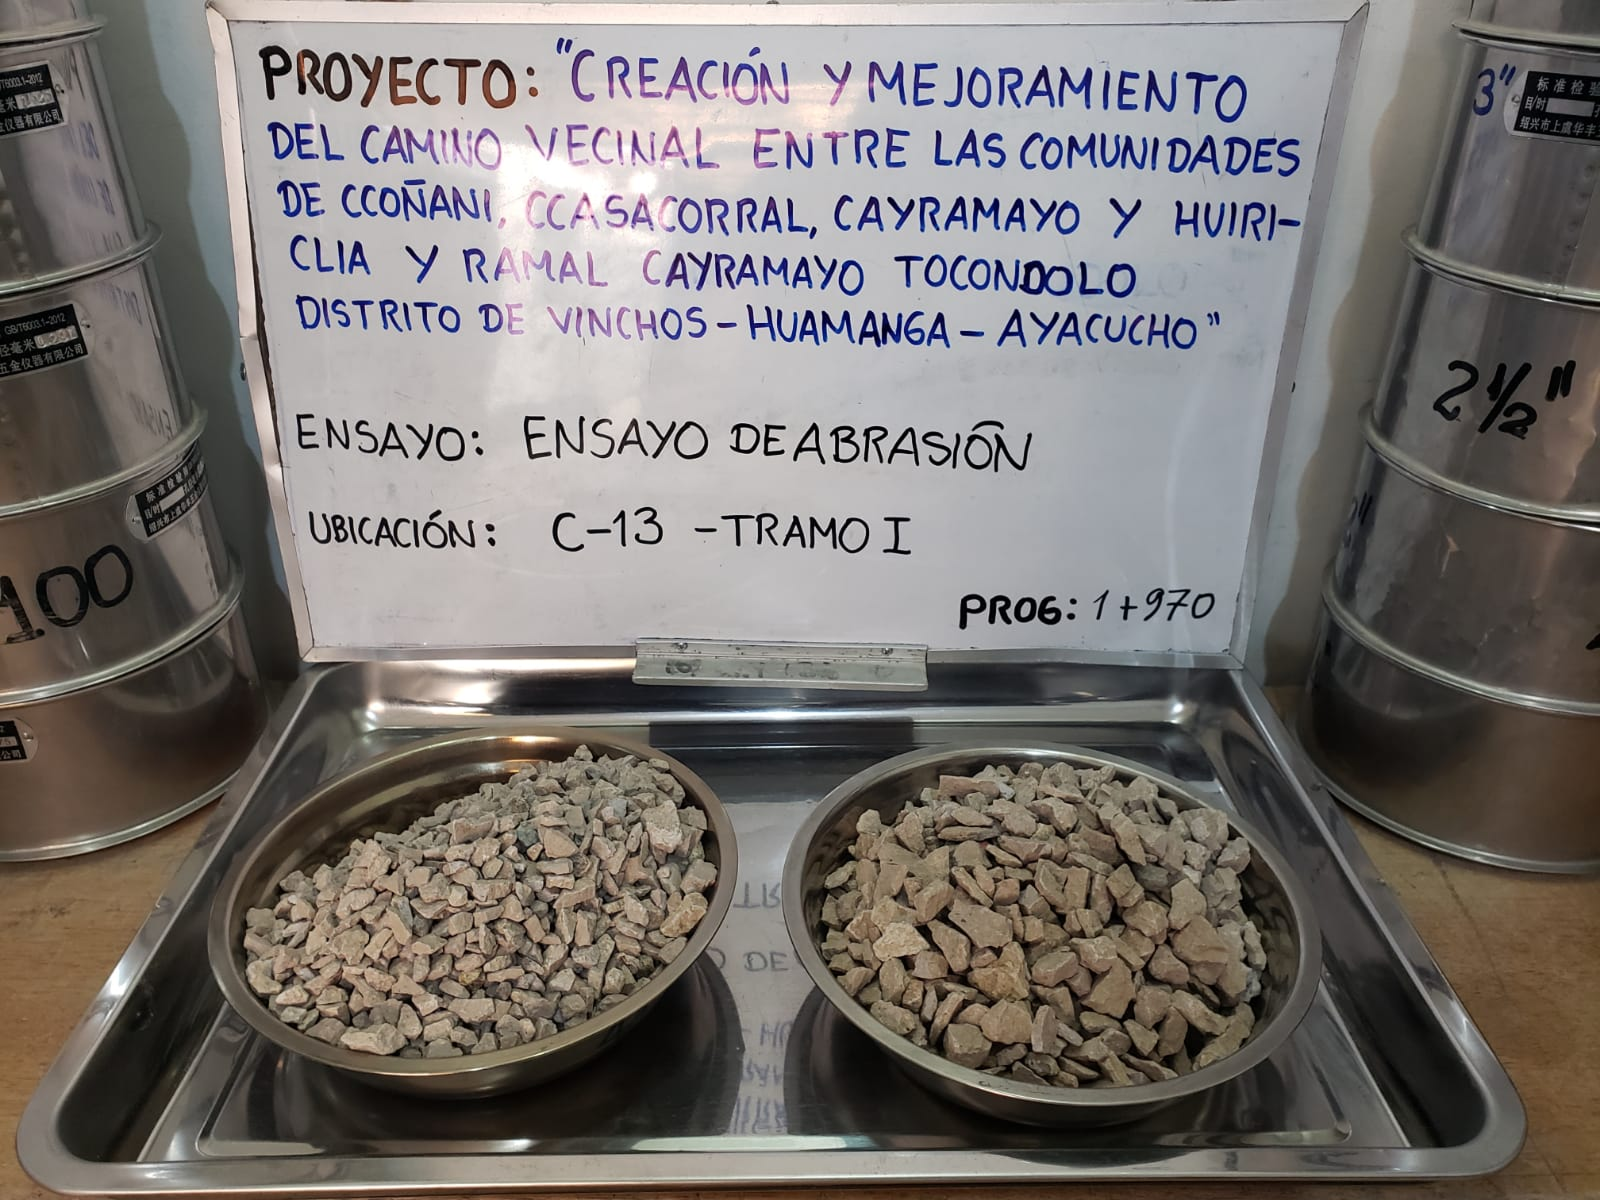 PROYECTO: "CREACIÓN Y MEJORAMIENTO
DEL CAMINO VECINAL ENTRE LAS COMUNIDADES
DE CCOÑANI, CCASACORRAL, CAYRAMAYO Y HUIRI-
CLIA Y RAMAL CAYRAMAYO TOCONDOLO
DISTRITO DE VINCHOS - HUAMANGA - AYACUCHO"
ENSAYO: ENSAYO DE ABRASIÓN
UBICACIÓN: C-13 - TRAMO I
PROG: 1+970
GB/T6003.1-2012
五金仪器有限公司
标准检验
100
3"
标准检验
目/时
绍兴市上虞华丰五
2 1/2"